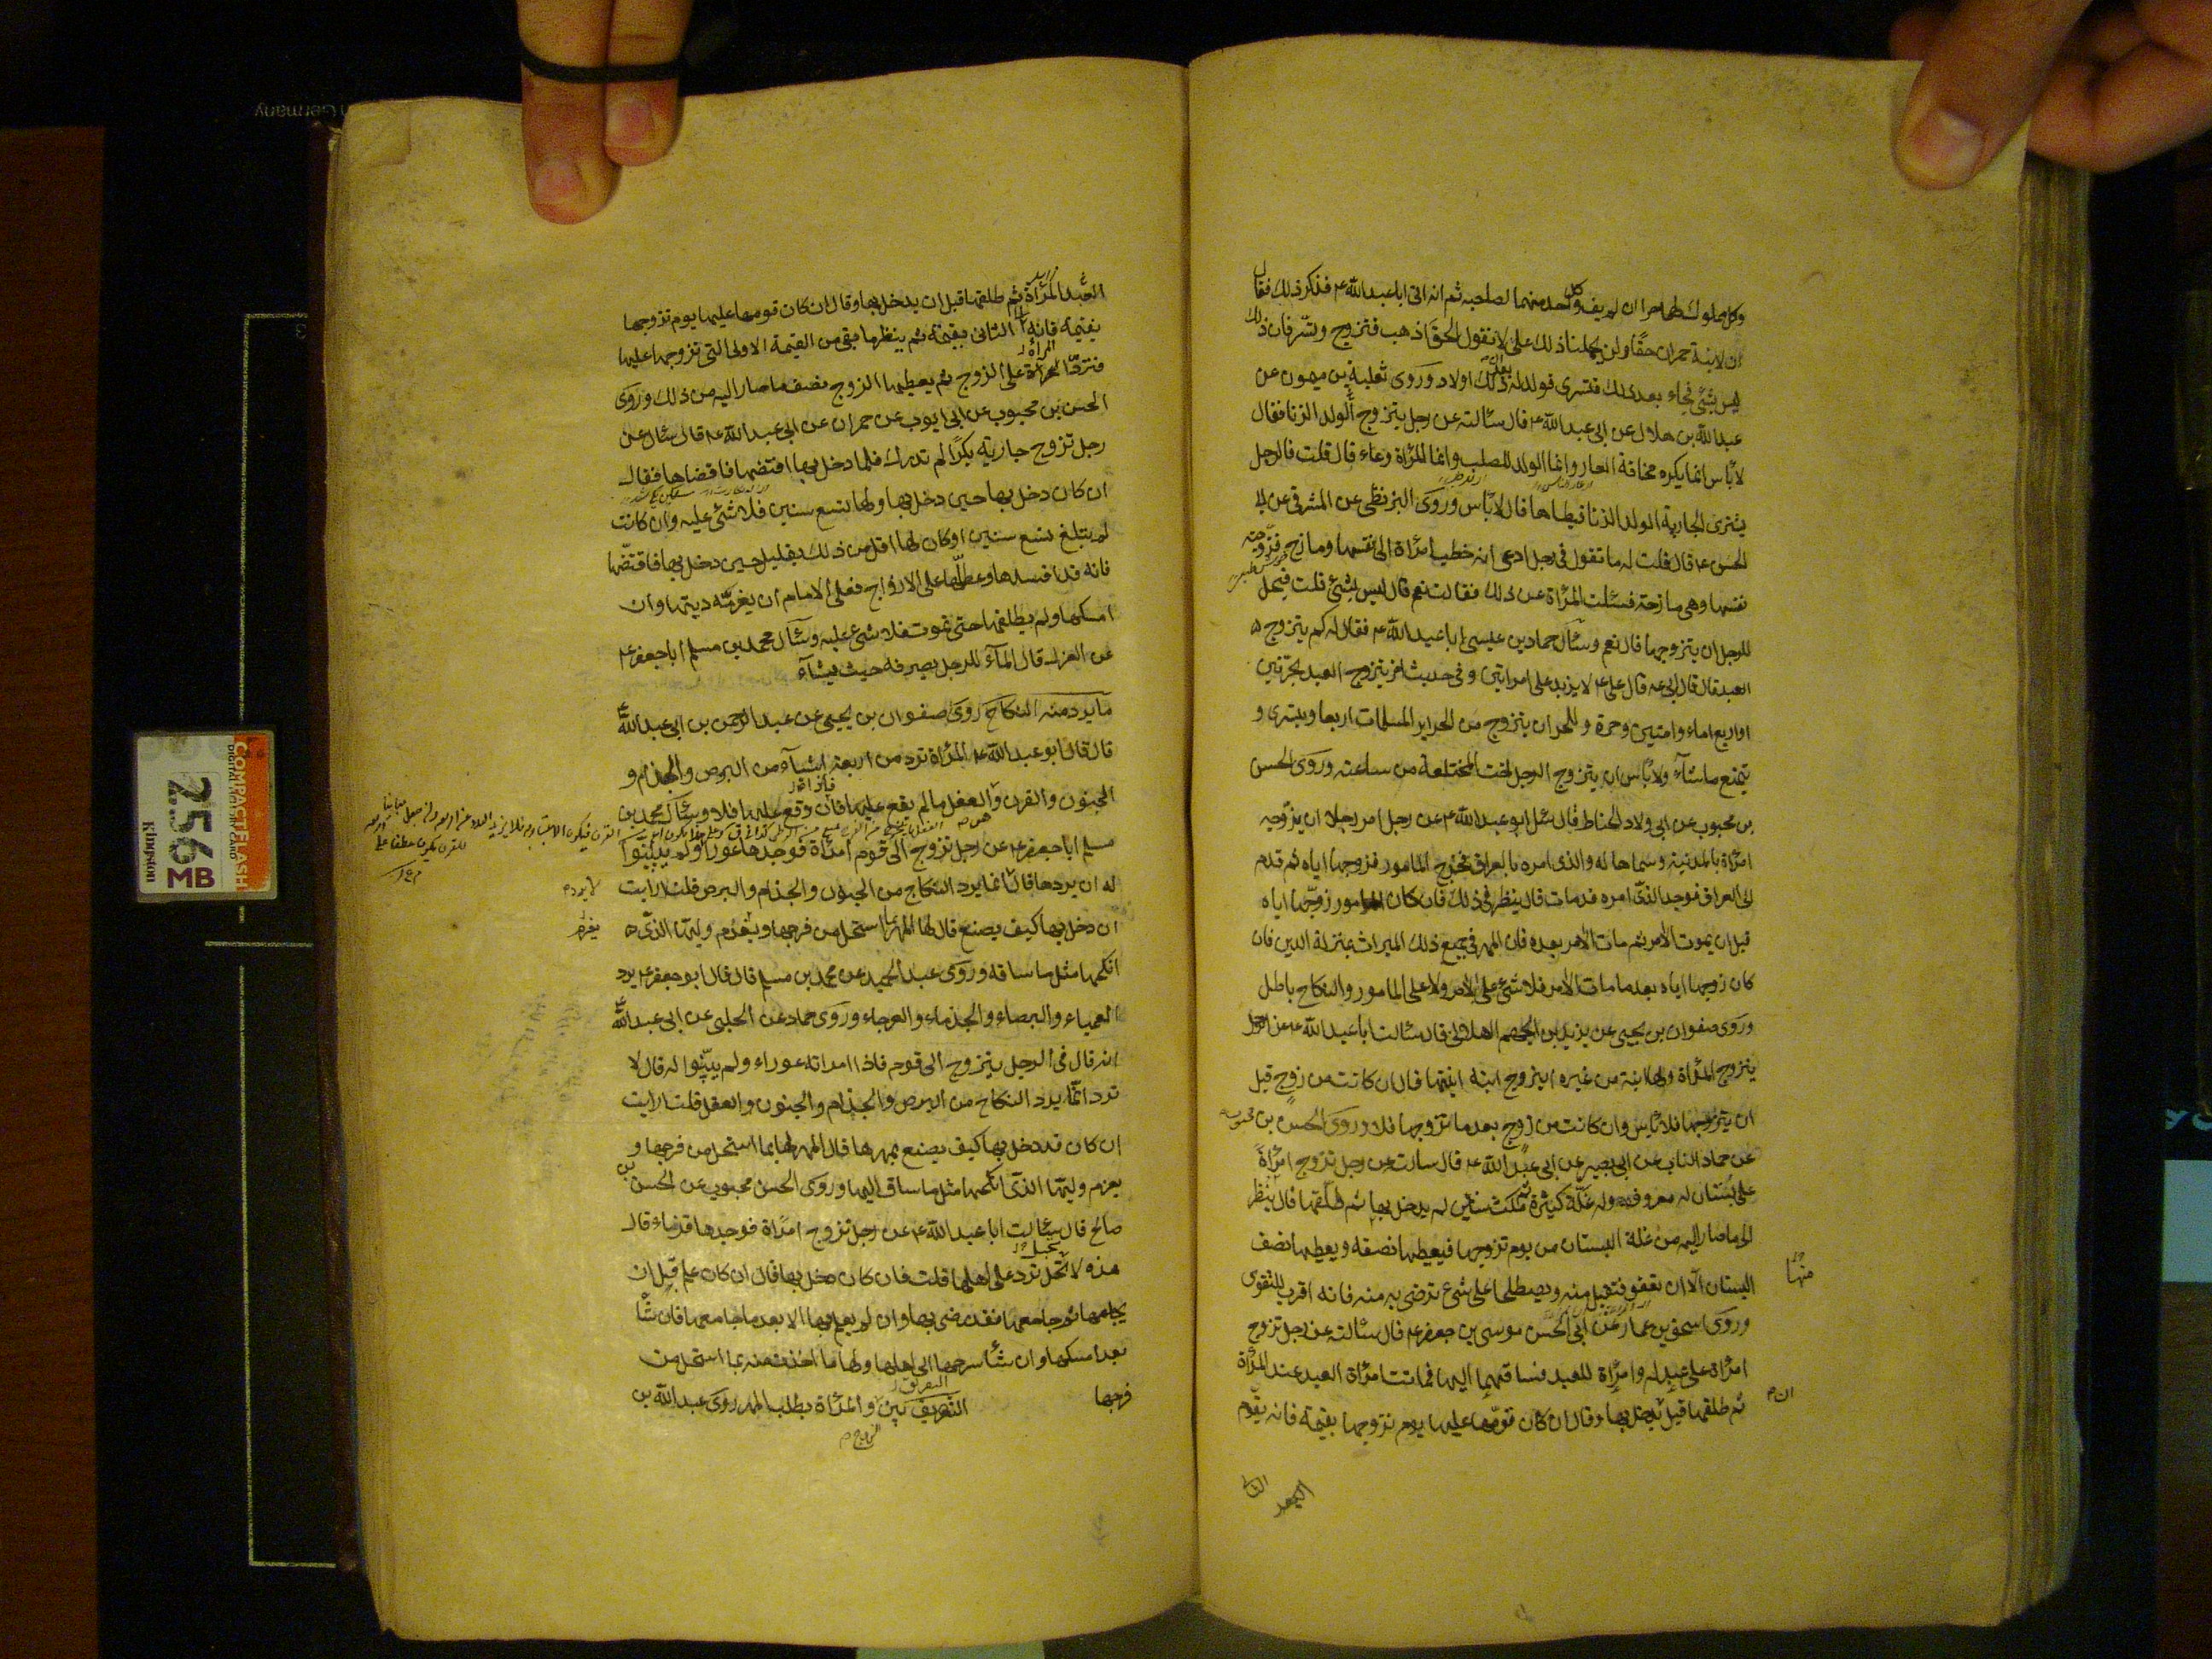 وكل مملوك لهما حرا ان لم يف كل واحد منهما لصاحبه ثم انه اتى ابا عبدالله ع فذكر ذلك فقال
ان لابنة حمران حقا ولن يحملنا ذلك على ان لا نقول الحق اذهب فتزوج وتسر فان ذلك
ليس بشئ فجاء بعد ذلك فتسرى فولد له بعد ذلك اولاد وروى ثعلبة بن ميمون عن
عبدالله بن هلال عن ابى عبدالله ع قال سألته عن رجل يتزوج ولد الزنا فقال
لا بأس انما يكره مخافة العار وانما الولد للصلب وانما المرأة وعاء قال قلت فالرجل
يشترى الجارية الولد الزنا فيطاها قال لا بأس وروى البزنطى عن المشرقى عن ابى
الحسن ع قال قلت له ما تقول فى رجل ادعى انه خطب امرأة الى نفسها ومازح فزوجته
نفسها وهى مازحة فسئلت المرأة عن ذلك فقالت نعم قال ليس بشئ قلت فيحل
للرجل ان يتزوجها قال نعم وسأل حماد بن عيسى ابا عبدالله ع فقال له كم يتزوج
العبد قال قال ابى ع قال على ع لا يزيد على امراتين وفى حديث اخر يتزوج العبد بحرتين
او اربع اماء وامتين وحرة وللحر ان يتزوج من الحراير المسلمات اربعا ويتسرى و
يتمتع ما شاء ولا بأس ان يتزوج الرجل اخت المختلعة من ساعته وروى الحسن
بن محبوب عن ابى ولاد الحناط قال سئل ابو عبدالله ع عن رجل امر رجلا ان يزوجه
امرأة بالمدينة وسماها له والذى امره بالعراق فخرج المامور فزوجها اياه ثم قدم
الى العراق فوجد الذى امره قد مات قال ينظر فى ذلك فان كان المامور زوجها اياه
قبل ان يموت الآمر ثم مات الآمر بعده فان المهر فى جميع ذلك الميراث بمنزلة الدين فان
كان زوجها اياه بعد ما مات الآمر فلا شئ على الآمر ولا على المامور والنكاح باطل
وروى صفوان بن يحيى عن يزيد بن الجهم الهلالى قال سألت ابا عبدالله ع عن الرجل
يتزوج المرأة ولها ابنة من غيره ايزوج ابنه ابنتها قال ان كانت من زوج قبل
ان يتزوجها فلا بأس وان كانت من زوج بعد ما تزوجها فلا وروى الحسن بن محبوب
عن حماد الناب عن ابى بصير عن ابى عبدالله ع قال سالته عن رجل تزوج امرأة
على بستان له معروف وله غلة كثيرة ثم مكث سنين لم يدخل بها ثم طلقها قال ينظر
الى ما صار اليه من غلة البستان من يوم تزوجها فيعطيها نصفه ويعطيها نصف
منها
البستان الا ان تعفو فتقبل منه ويصطلحا على شئ ترضى به منه فانه اقرب للتقوى
وروى اسحق بن عمار عن ابى الحسن موسى بن جعفر ع قال سألته عن رجل تزوج
امرأة على عبد له وامرأة للعبد فساقهما اليها فماتت امرأة العبد عند المرأة
ان
ثم طلقها قبل يدخل بها وقال ان كان قومها عليها يوم تزوجها بقيمة فانه يقوم
العبد
العبد المرأة ثم طلقها قبل ان يدخل بها وقال ان كان قومها عليها يوم تزوجها
بقيمة فانه الثانى بقيمة ثم ينظر ما بقى من القيمة الاولى التى تزوجها عليها
فترد المرأة على الزوج ثم يعطيها الزوج نصف ما صار اليه من ذلك وروى
الحسن بن محبوب عن ابى ايوب عن حمران عن ابى عبدالله ع قال سئل عن
رجل تزوج جارية بكرا لم تدرك فلما دخل بها افتضها فافضاها فقال
ان كان دخل بها حين دخل بها ولها تسع سنين فلا شئ عليه وان كانت
لم يبلغ تسع سنين او كان لها اقل من ذلك بقليل حين دخل بها فاقتضها
فانه قد افسدها وعطلها على الازواج فعلى الامام ان يغرمه ديتها وان
امسكها ولم يطلقها حتى تموت فلا شئ عليه وسأل محمد بن مسلم ابا جعفر ع
عن العزل قال الماء للرجل يصرفه حيث يشاء
ما يرد منه النكاح روى صفوان بن يحيى عن عبد الرحمن بن ابى عبدالله
قال قال ابو عبدالله ع المرأة ترد من اربعة اشياء من البرص والجذام و
الجنون والقرن والعفل ما لم يقع عليها فان وقع عليها فلا وسأل محمد بن
مسلم ابا جعفر ع عن رجل تزوج الى قوم امرأة فوجدها عورا ولم يبينوا
له ان يردها قال انما يرد النكاح من الجنون والجذام والبرص قلت ارايت
ان دخل بها كيف يصنع قال لها المهر بما استحل من فرجها ويغرم وليها الذى
يغرم
انكحها مثل ما ساقه وروى عبد الحميد عن محمد بن مسلم قال قال ابو جعفر ع يرد
العمياء والبرصاء والجذماء والعرجاء وروى حماد عن الحلبى عن ابى عبدالله
انه قال فى الرجل يتزوج الى قوم فاذا امراته عوراء ولم يبينوا له قال لا
ترد انما يرد النكاح من البرص والجذام والجنون والعفل قلت ارايت
ان كان قد دخل بها كيف يصنع بمهرها قال المهر لها بما استحل من فرجها و
يغرم وليها الذى انكحها مثل ما ساق اليها وروى الحسن محبوب عن الحسن بن
صالح قال سألت ابا عبدالله ع عن رجل تزوج امرأة فوجدها قرناء قال
هذه لا تحبل ترد على اهلها قلت فان كان دخل بها قال ان كان علم قبل ان
يجامعها ثم جامعها فقد رضى بها وان لم يعلم بها الا بعد ما جامعها فان شا
بعد امسكها وان شاء سرحها الى اهلها ولها ما اخذت منه بما استحل من
فرجها التفريق بين الزوج والمرأة بطلب المهر روى عبدالله بن
COMPACTFLASH
256 MB
Kingston
Germany